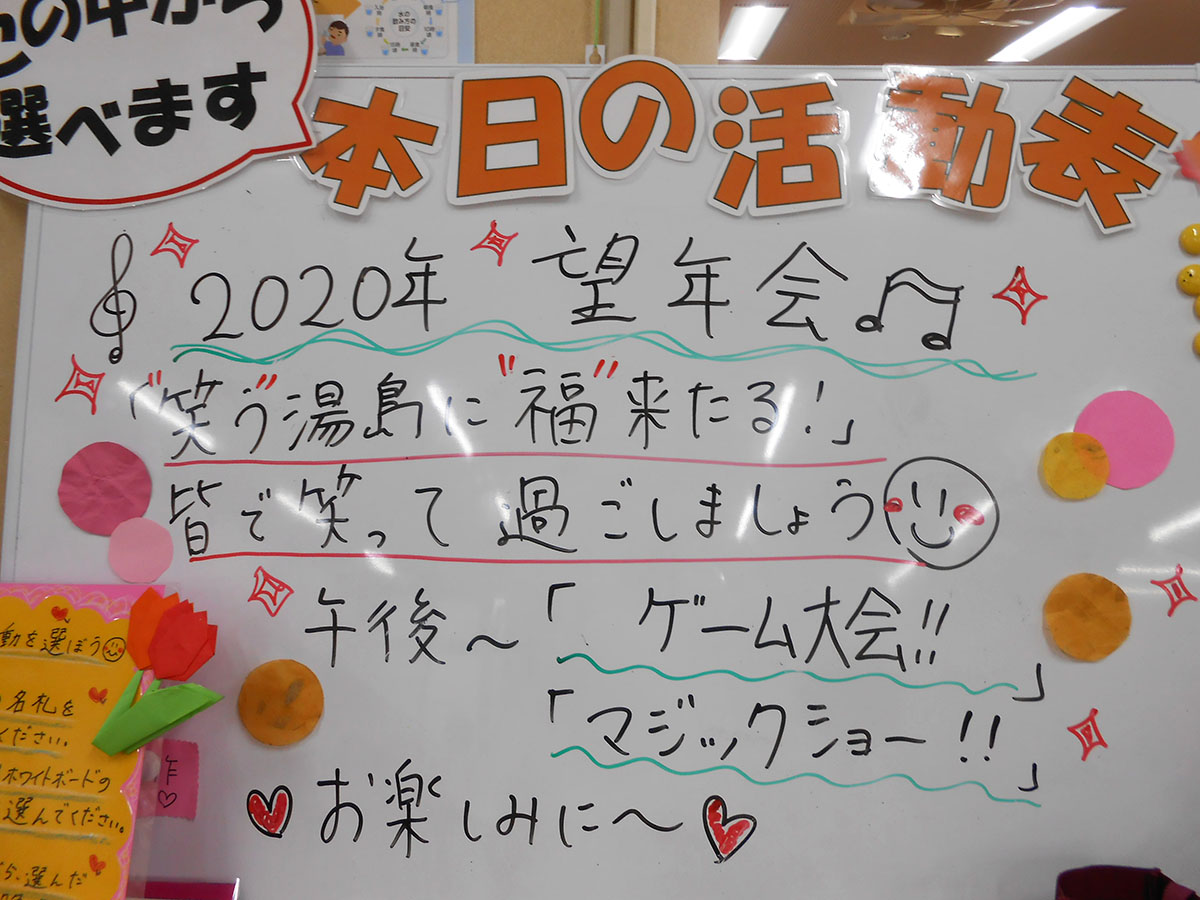 の中から
選べます
本日の活動表
2020年 望年会
「"笑う"湯島に"福"来たる!」
皆で笑って過ごしましょう
午後～「ゲーム大会!!」
「マジックショー!!」
お楽しみに～
動を選ぼう
名札を
ください。
ホワイトボードの
選んでください。
選んだ